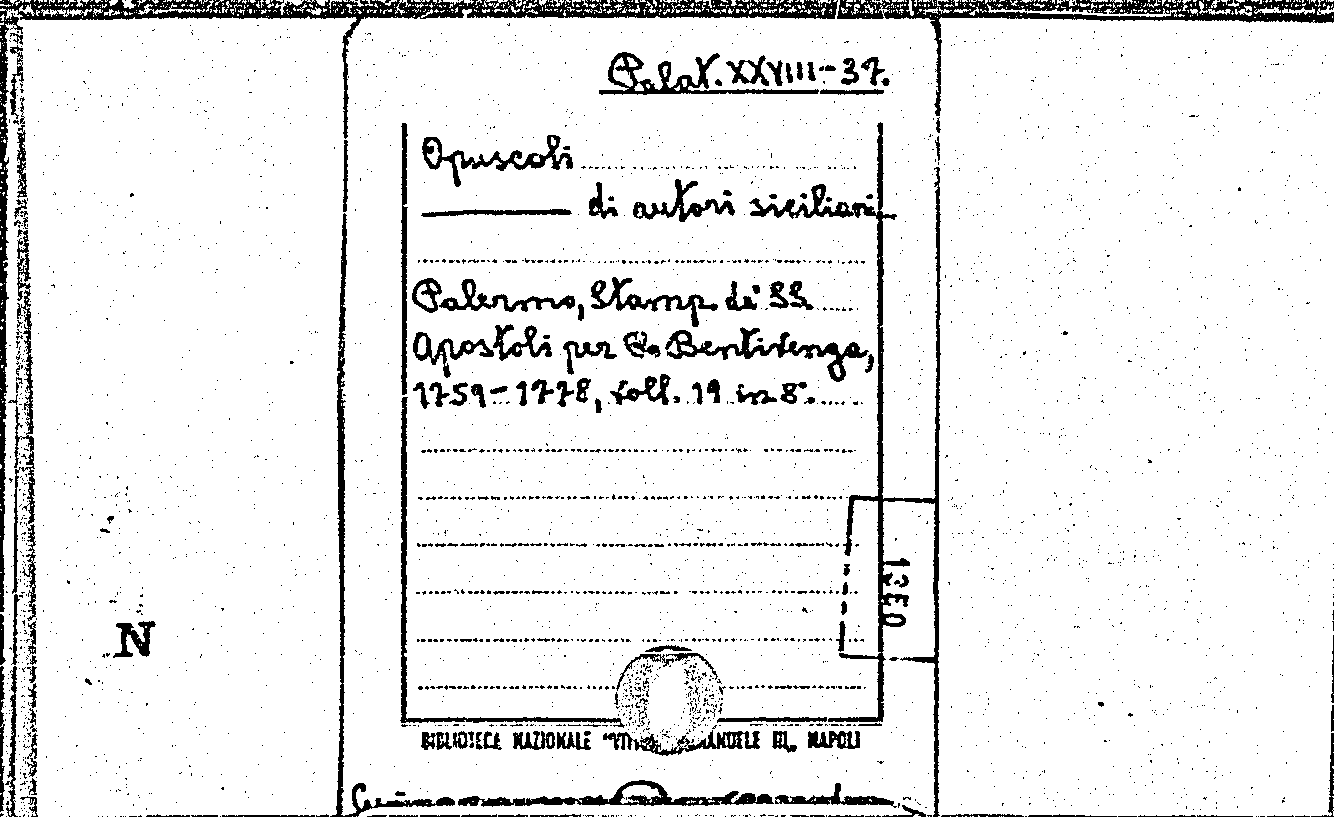 Palat. XXVIII-37.
Opuscoli
di autori siciliani
Palermo, Stamp. de' SS.
Apostoli per P. Bentivenga,
1759-1778, voll. 19 in 8°.
13E0
N
BIBLIOTECA NAZIONALE "VITT ANUELE III„ NAPOLI